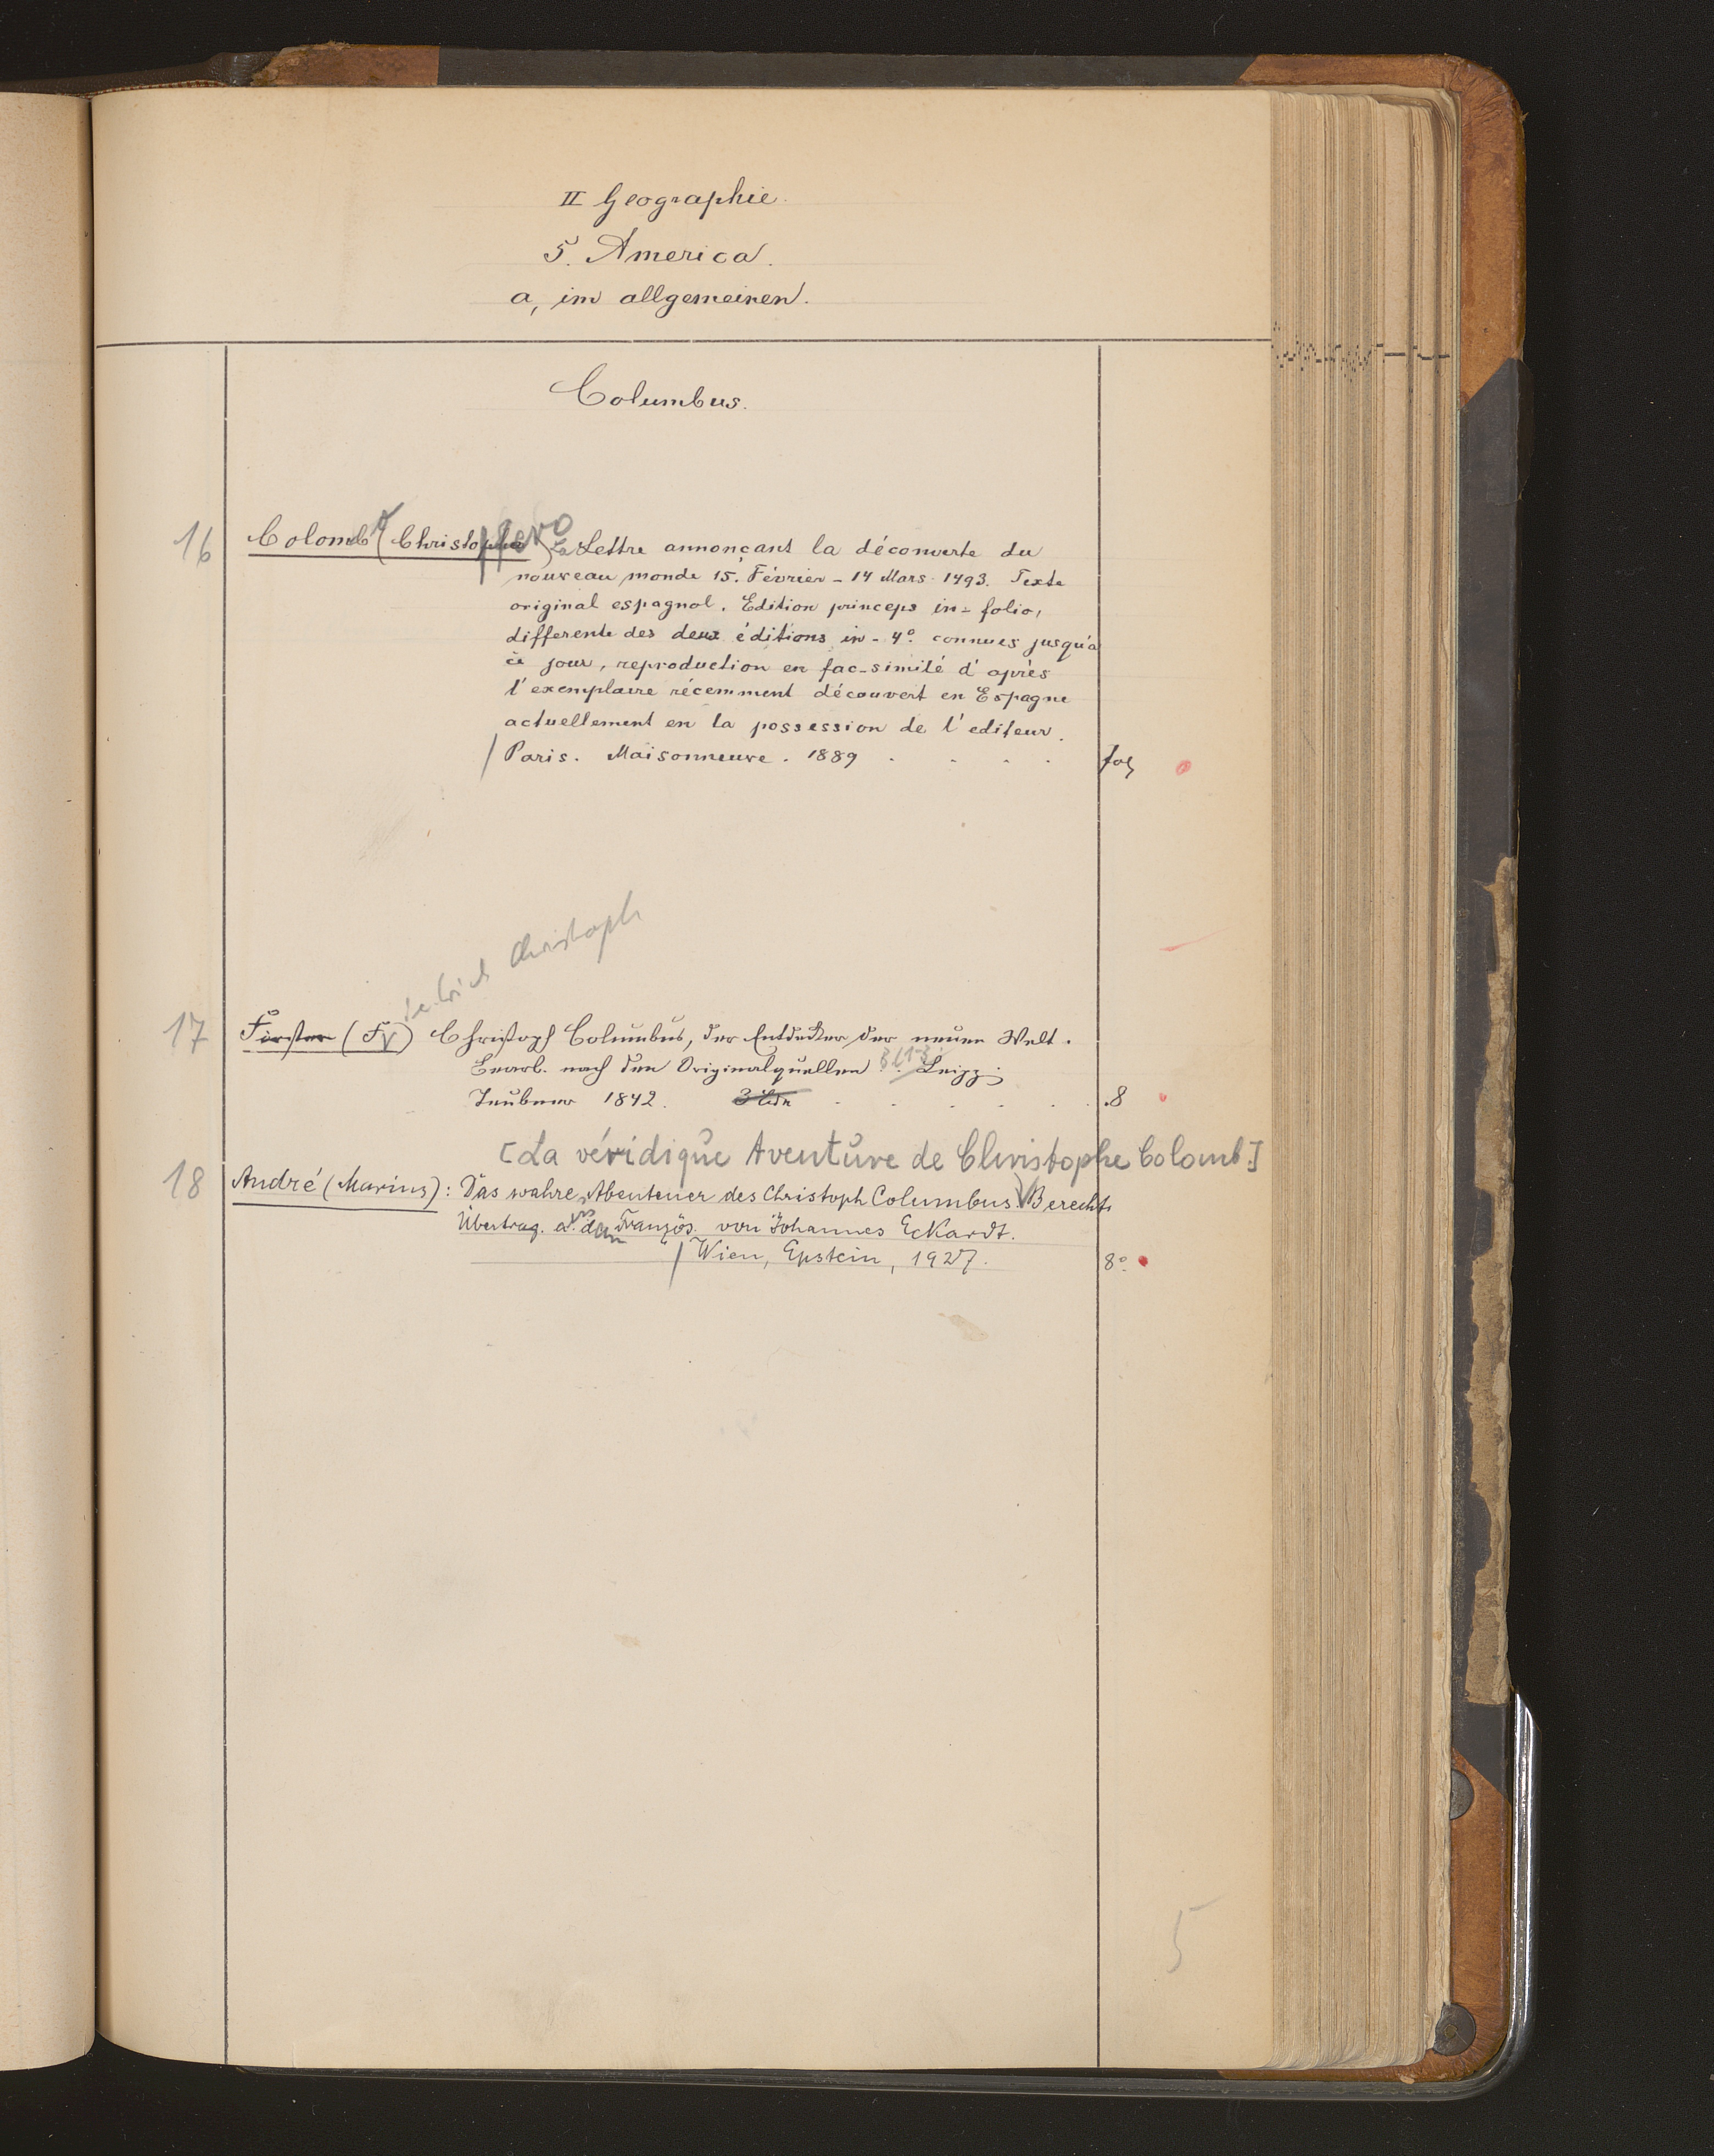 II Geographie.
5. America.
a, im allgemeinen.
Columbus.
16 Colomb (Christophe) La Lettre annonçant la déconverte du
nouveau monde 15. Février - 14 Mars 1493. Texte
original espagnol. Edition princeps in-folio,
differente des deux éditions in-4° connues jusqu'a
ce jour, reproduction en fac-similé d'après
l'exemplaire récemment découvert en Espagne
actuellement en la possession de l'editeur.
/ Paris. Maisonneuve. 1889 . . . . fol
Christoph
17 Förster (F) Christoph Columbus, der Entdecker der neuen Welt.
Bearb. nach den Originalquellen 1-3. Leipz:
Teubner 1842. 3 Bde . . . . . 8
[La véridique Aventure de Christophe Colomb.]
18 André (Marius): Das wahre Abenteuer des Christoph Columbus. Berecht.
Übertrag. aus dem Französ. von Johannes Eckardt.
/ Wien, Epstein, 1927. 8°
5